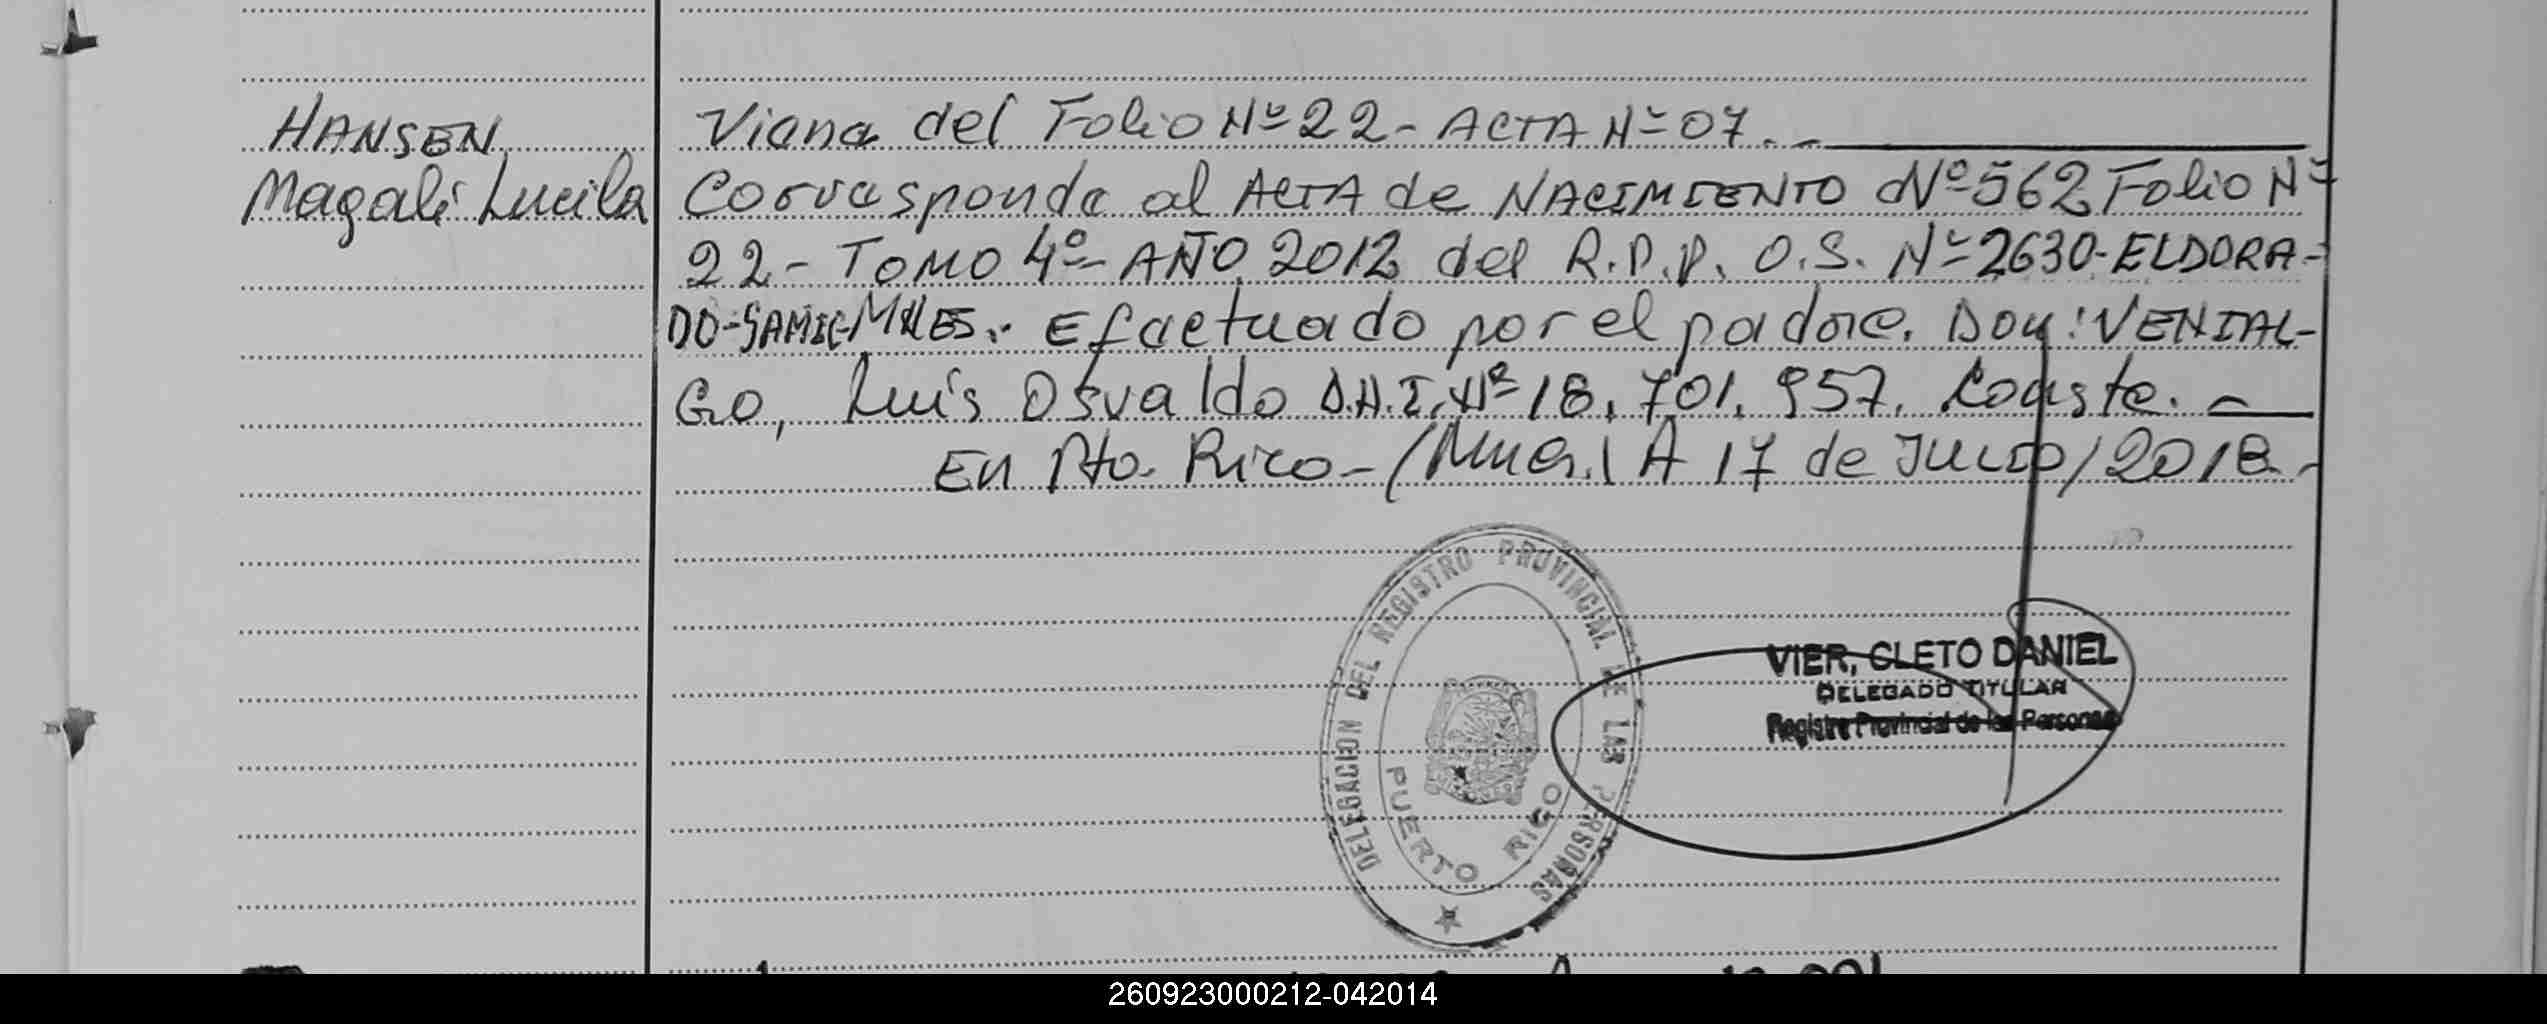 HANSEN
Magali Lucila
Viene del Folio Nº 22 - ACTA Nº 07. -
Corresponde al ACTA de NACIMIENTO Nº 562 Folio Nº
22 - TOMO 4º - AÑO 2012 del R.P.P. O.S. Nº 2630 - ELDORA-
DO - SAMIC - MNES.. Efectuado por el padre. Don: VENIAL-
GO, Luis Osvaldo D.N.I. Nº 18.701.957. Conste. -
En Pto. Rico - (Mnes.) A 17 de JULIO / 2018.-
DELEGACION DEL REGISTRO PROVINCIAL DE LAS PERSONAS
PUERTO RICO
VIER, CLETO DANIEL
DELEGADO TITULAR
Registro Provincial de las Personas
260923000212-042014